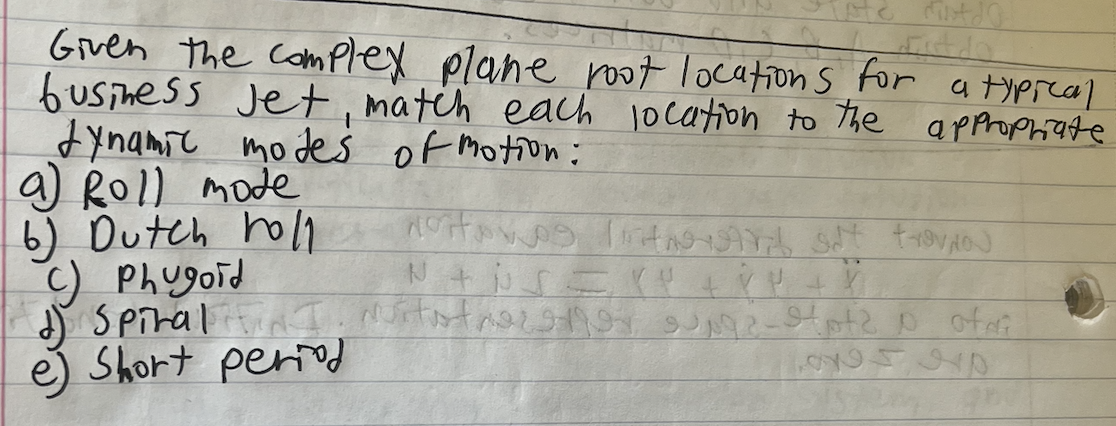 Given the complex plane root locations for a typical
business jet, match each location to the appropriate
dynamic modes of motion:
a) Roll mode
b) Dutch roll
c) Phugoid
d) Spiral
e) Short period